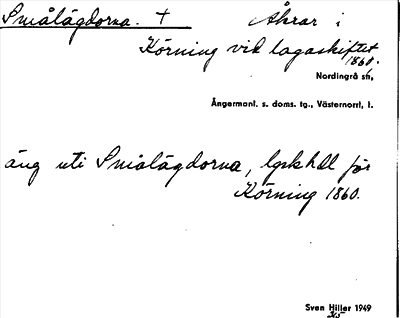 Smålägdorna. + Åkrar i
Körning vid lagaskiftet
1860.
Nordingrå sn,
Ångermanl. s. doms. tg., Västernorrl. l.
äng uti Smålägdorna, lgskhdl för
Körning 1860.
Sven Hiller 1949